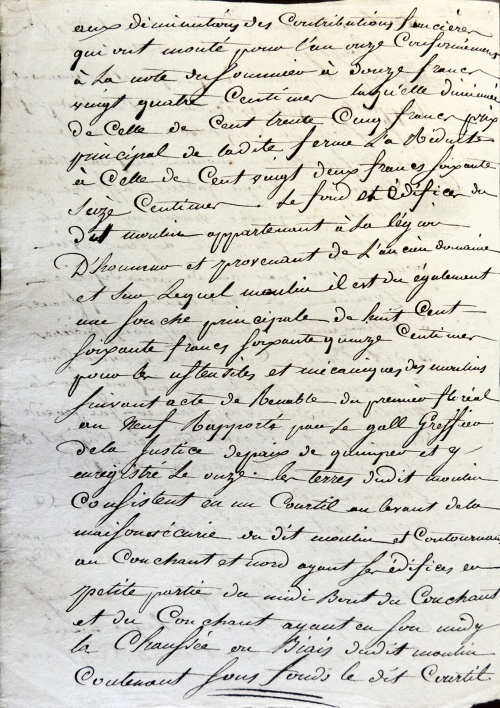 aux diminutions des Contributions foncières
qui ont monté pour l'an onze Conformément
à La note du sommier à douze francs
vingt quatre Centimes laquelle diminuée
de Celle de Cent trente Cinq francs prix
principal de ladite ferme La Réduite
à Celle de Cent vingt deux francs soixante
seize Centimes. Le fond et édifices du
dit moulin appartenant à La légion
D'honneur et provenant de L'ancien domaine
et sur Lequel moulin il est du également
une souche principale de huit Cent
soixante francs soixante quinze Centimes
pour les ustensiles et mécaniques des moulins
suivant acte de Renable du premier floréal
an neuf Rapporté par Le gall Greffier
de la Justice de paix de quimper et y
enregistré Le onze. les terres dudit moulin
Consistent en un Courtil au levant de la
maison écurie du dit moulin et Contournant
au Couchant et nord ayant ses édifices en
petite partie du midi Bout du Couchant
et du Couchant ayant en son midy
la Chaussée ou Biais dudit moulin
Contenant sous fonds le dit Courtil